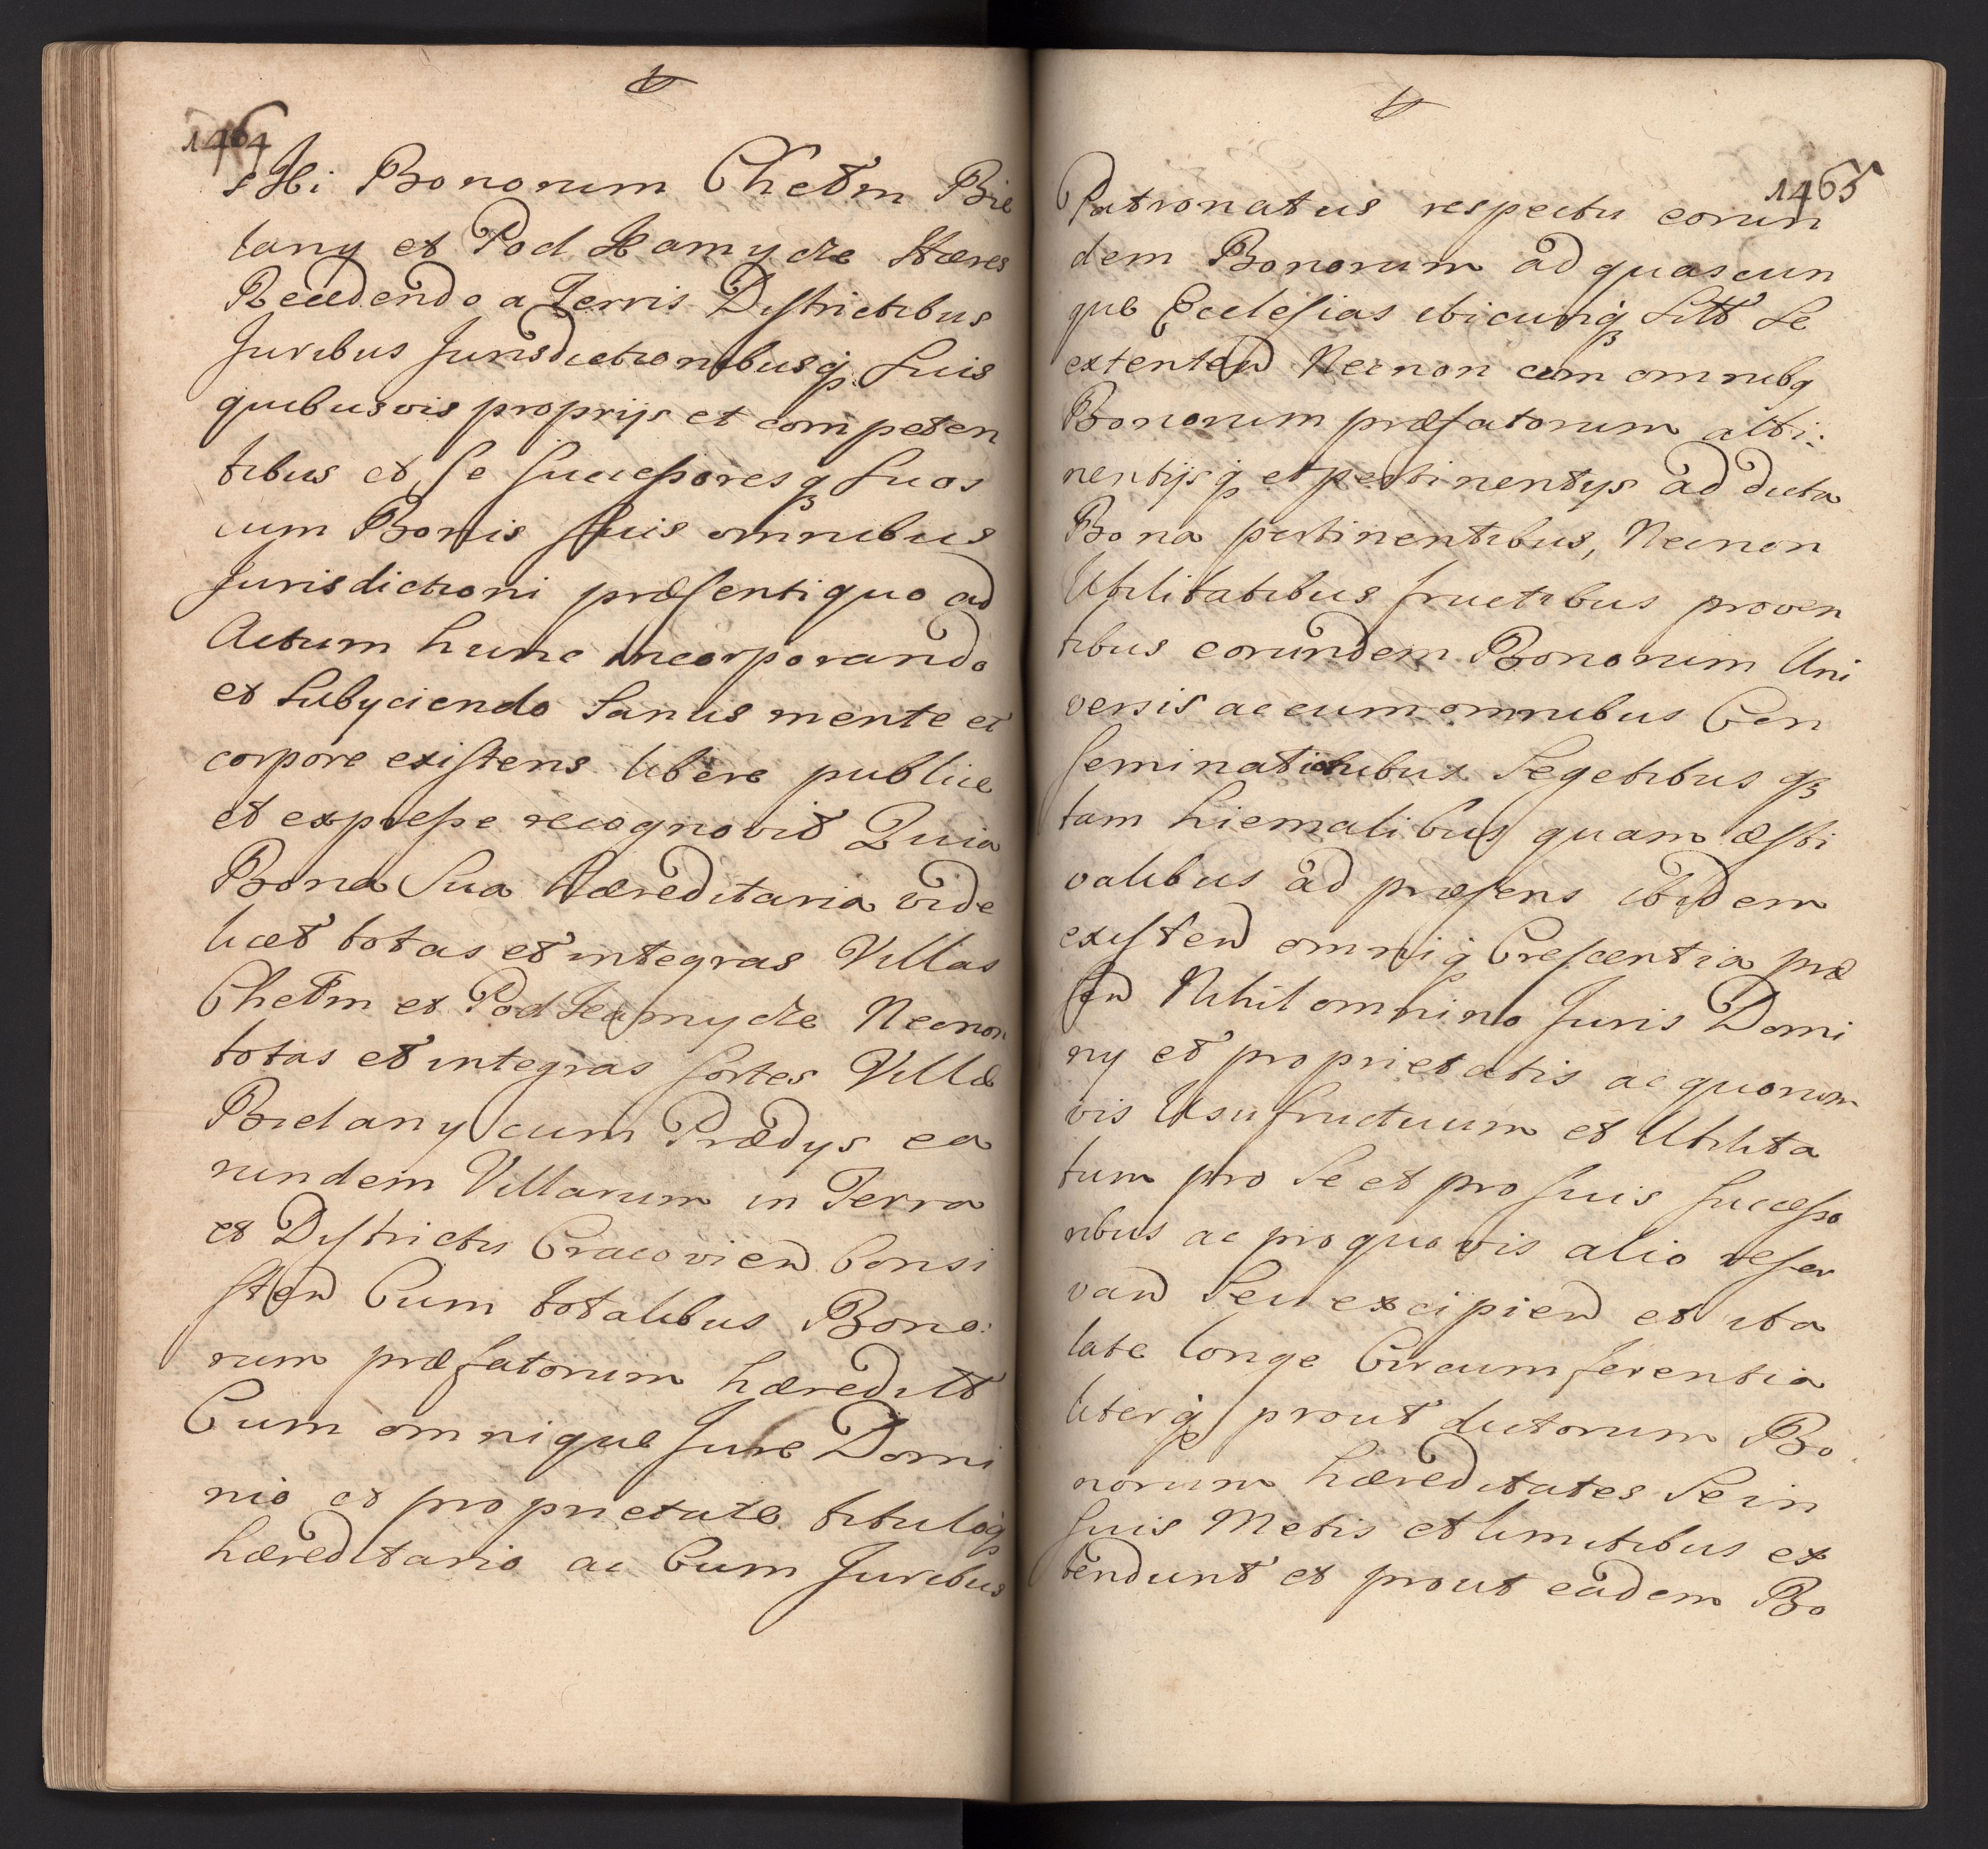 1464
sKi Bonorum Chełm Bie
lany et PodKamycze Hæres
Recedendo a Terris Districtibus
Juribus Jurisdictionibusq₃ Suis
quibusvis proprijs et competen
tibus et Se Successoresq₃ Suos
cum Bonis Suis omnibus
Jurisdictioni præsenti quo ad
Actum hunc incorporando
et Subyciendo Sanus mente et
corpore existens libere publice
et expresse recognovit Quia
Bona Sua hæreditaria vide
licet totas et integras Villas
Chełm et PodKamycze Necnon
totas et integras Sortes Villæ
Bielany cum Prædys ea
rundem Villarum in Terra
et Districtu Cracovien Consi
sten Cum totalibus Bono:
rum præfatorum hæreditt
Cum omnique Jure Domi
nio et proprietate tituloq₃
hæreditario ac Cum Juribus
1465
Patronatus respectu eorun
dem Bonorum ad quascun
que Ecclesias ubicunq₃ Sitt Se
extenten Necnon cum omnibq
Bonorum præfatorum atti:
nentijsq₃ et pertinentys ad dicta
Bona pertinentibus, Necnon
Utilitatibus fructibus proven
tibus eorundem Bonorum Uni
versis ac cum omnibus Con
seminationibus Segetibusq₃
tam hiemalibus quam æsti
valibus ad præsens ibidem
existen omniq₃ Crescentia præ
sen Nihil omnino Juris Domi
ny et proprietatis ac quorum
vis Usufructuum et Utilita
tum pro Se et pro Suis Successo
ribus ac pro quovis alio reser
van Seu excipien et ita
late longe Circumferentia
literq₃ prout dictorum Bo
norum hæreditates Se in
Suis Metis et limitibus ex
tendunt et prout eadem Bo